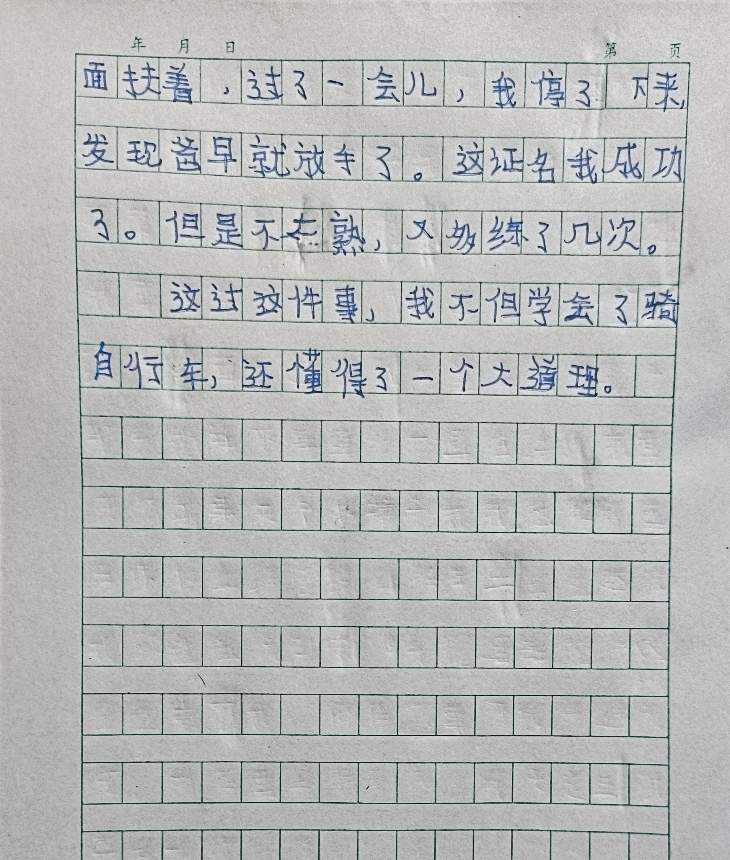 年 月 日 第 页
面扶着，过了一会儿，我停了下来，
发现爸早就放手了。这证名我成功
了。但是不太熟，又多练了几次。
这过这件事，我不但学会了骑
自行车，还懂得了一个大道理。